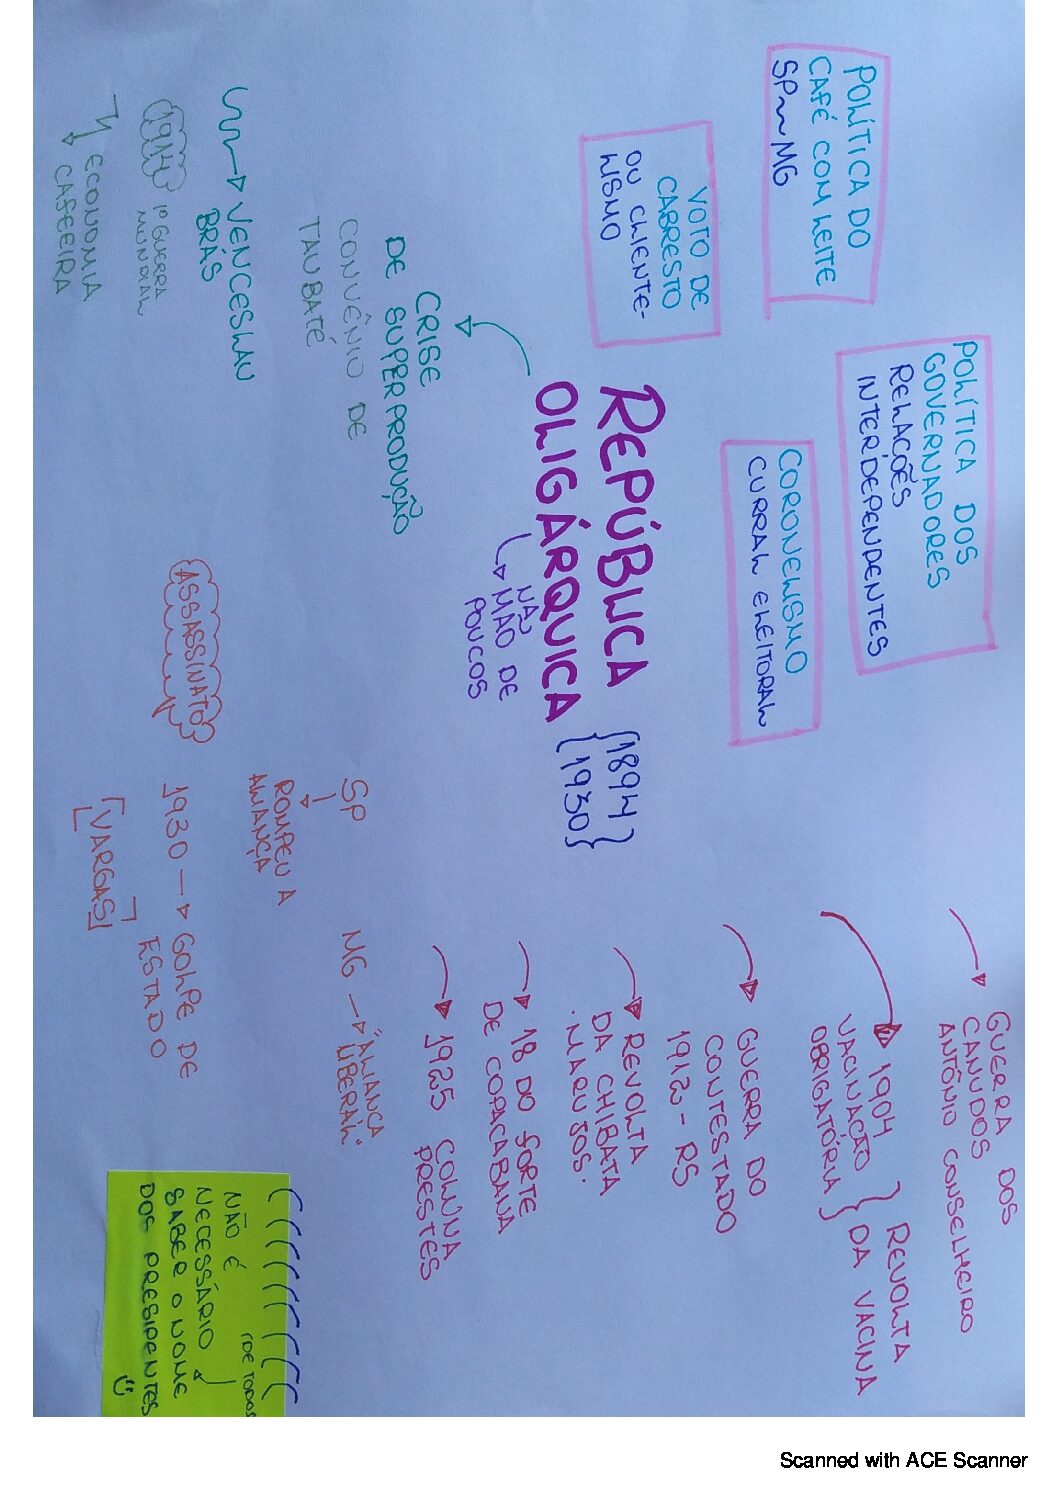 POLÍTICA DO
CAFÉ COM LEITE
SP ~ MG
POLÍTICA DOS
GOVERNADORES
RELAÇÕES
INTERDEPENDENTES
VOTO DE
CABRESTO
OU CLIENTE-
LISMO
CORONELISMO
CURRAL ELEITORAL
REPÚBLICA
OLIGÁRQUICA
{1894}
{1930}
NAS
MÃO DE
POUCOS
CRISE
DE SUPERPRODUÇÃO
CONVÊNIO DE
TAUBATÉ
VENCESLAU
BRÁS
1914
1º GUERRA
MUNDIAL
ECONOMIA
CAFEEIRA
GUERRA DOS
CANUDOS
ANTÔNIO CONSELHEIRO
1904
VACINAÇÃO
OBRIGATÓRIA
REVOLTA
DA VACINA
GUERRA DO
CONTESTADO
1912 - RS
REVOLTA
DA CHIBATA
. MARUJOS.
18 DO FORTE
DE COPACABANA
1925 COLUNA
PRESTES
SP
ROMPEU A
ALIANÇA
MG → "ALIANÇA
LIBERAL"
ASSASSINATO
1930 → GOLPE DE
ESTADO
[VARGAS]
NÃO É
(DE TODOS
NECESSÁRIO
SABER O NOME
DOS PRESIDENTES
Scanned with ACE Scanner